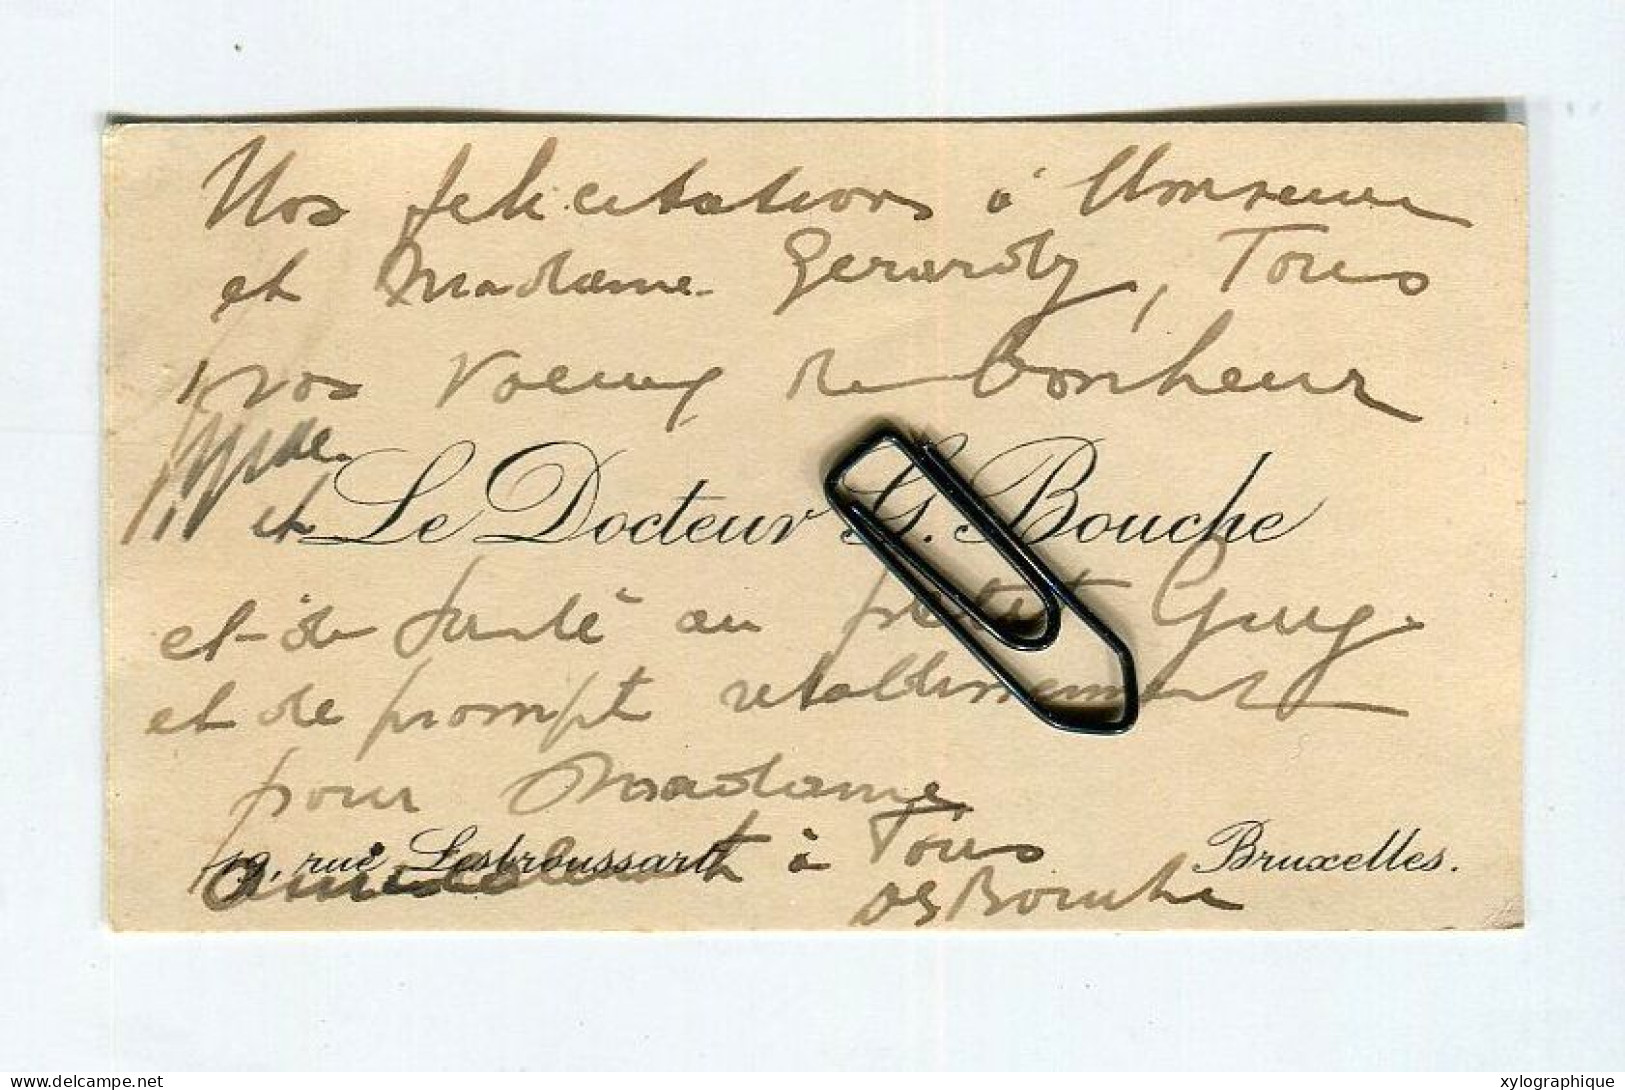 Nos félicitations à Monsieur
et Madame Gerardy, Tous
nos voeux de bonheur
et Le Docteur G. Bouche
et de santé au petit Guy
et de prompt rétablissement
pour Madame
19, rue Lesbroussart à Tous Bruxelles.
Dr G Bouche
www.delcampe.net
xylographique